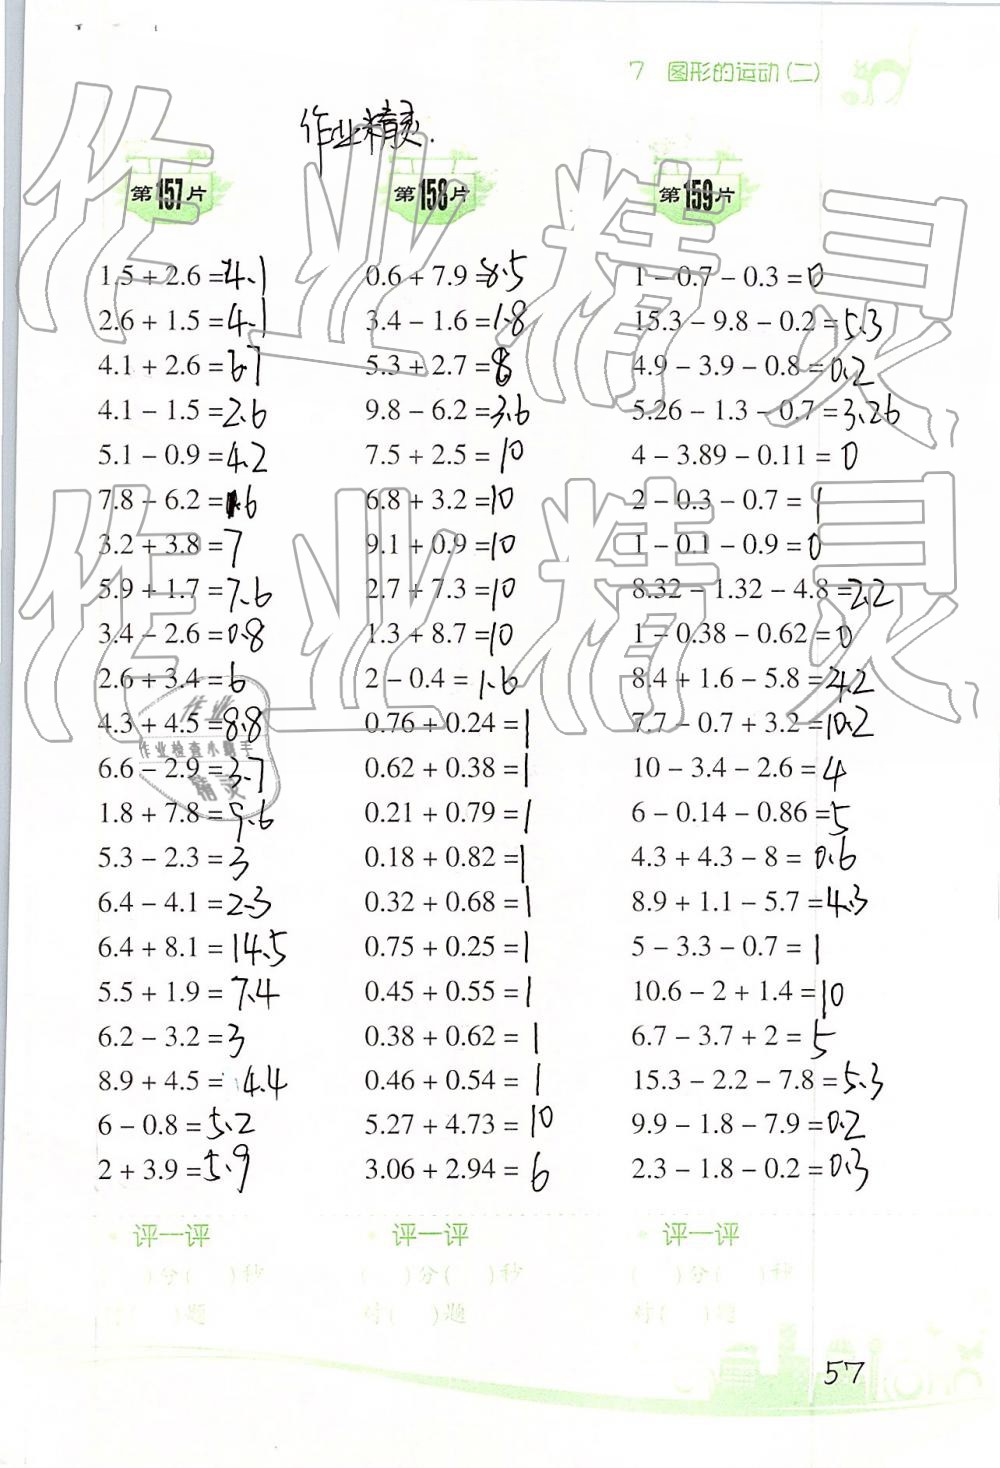 7 图形的运动(二)
作业精灵.
第157片
1.5 + 2.6 = 4.1
2.6 + 1.5 = 4.1
4.1 + 2.6 = 6.7
4.1 - 1.5 = 2.6
5.1 - 0.9 = 4.2
7.8 - 6.2 = 1.6
3.2 + 3.8 = 7
5.9 + 1.7 = 7.6
3.4 - 2.6 = 0.8
2.6 + 3.4 = 6
4.3 + 4.5 = 8.8
6.6 - 2.9 = 3.7
1.8 + 7.8 = 9.6
5.3 - 2.3 = 3
6.4 - 4.1 = 2.3
6.4 + 8.1 = 14.5
5.5 + 1.9 = 7.4
6.2 - 3.2 = 3
8.9 + 4.5 = 4.4
6 - 0.8 = 5.2
2 + 3.9 = 5.9
评一评
( )分( )秒
对( )题
第158片
0.6 + 7.9 = 8.5
3.4 - 1.6 = 1.8
5.3 + 2.7 = 8
9.8 - 6.2 = 3.6
7.5 + 2.5 = 10
6.8 + 3.2 = 10
9.1 + 0.9 = 10
2.7 + 7.3 = 10
1.3 + 8.7 = 10
2 - 0.4 = 1.6
0.76 + 0.24 = 1
0.62 + 0.38 = 1
0.21 + 0.79 = 1
0.18 + 0.82 = 1
0.32 + 0.68 = 1
0.75 + 0.25 = 1
0.45 + 0.55 = 1
0.38 + 0.62 = 1
0.46 + 0.54 = 1
5.27 + 4.73 = 10
3.06 + 2.94 = 6
评一评
( )分( )秒
对( )题
第159片
1 - 0.7 - 0.3 = 0
15.3 - 9.8 - 0.2 = 5.3
4.9 - 3.9 - 0.8 = 0.2
5.26 - 1.3 - 0.7 = 3.26
4 - 3.89 - 0.11 = 0
2 - 0.3 - 0.7 = 1
1 - 0.1 - 0.9 = 0
8.32 - 1.32 - 4.8 = 2.2
1 - 0.38 - 0.62 = 0
8.4 + 1.6 - 5.8 = 4.2
7.7 - 0.7 + 3.2 = 10.2
10 - 3.4 - 2.6 = 4
6 - 0.14 - 0.86 = 5
4.3 + 4.3 - 8 = 0.6
8.9 + 1.1 - 5.7 = 4.3
5 - 3.3 - 0.7 = 1
10.6 - 2 + 1.4 = 10
6.7 - 3.7 + 2 = 5
15.3 - 2.2 - 7.8 = 5.3
9.9 - 1.8 - 7.9 = 0.2
2.3 - 1.8 - 0.2 = 0.3
评一评
( )分( )秒
对( )题
作业精灵
作业精灵
作业
作业检查小帮手
精灵
57